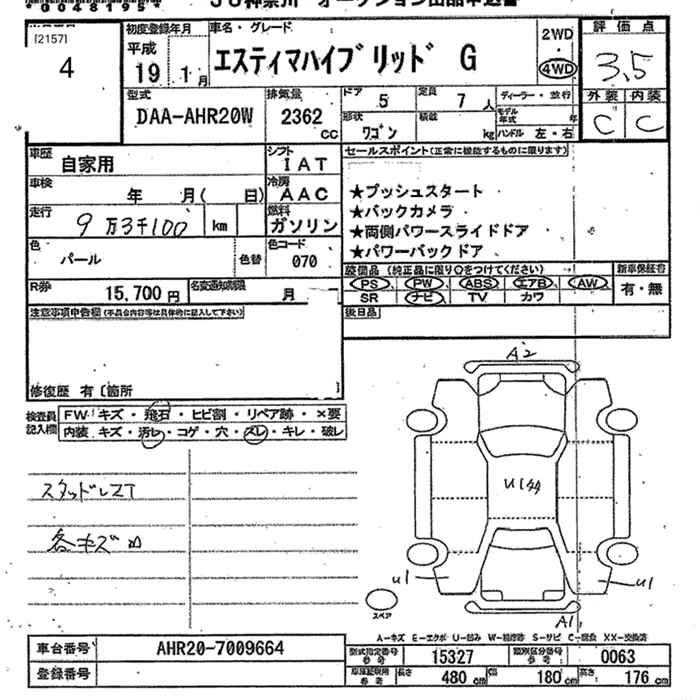 *00481954*
JU神奈川 オークション出品申込書
[2157]
4
初度登録年月
平成
19 1月
車名・グレード
エスティマハイブリッド G
2WD
・
4WD
評価点
3.5
外装 内装
C C
型式
DAA-AHR20W
排気量
2362
cc
ドア
5
定員
7 人
ディーラー・並行
形状
ワゴン
積載
kg
モデル年式 年
ハンドル 左・右
車歴
自家用
シフト
IAT
セールスポイント(正常に機能するものに限ります)
車検
年 月( 日)
冷房
AAC
★プッシュスタート
★バックカメラ
★両側パワースライドドア
★パワーバックドア
走行
9万3千100 km
燃料
ガソリン
色
パール
色替
色コード
070
装備品 (純正品に限り○をつけてください)
新車保証書
PS PW ABS エアB AW
有・無
SR ナビ TV カワ
R券
15,700円
名変通知期限
月
注意事項申告欄(不具合内容等は具体的に記入して下さい)
後日品
修復歴 有 〔箇所
検査員
記入欄
FW キズ・飛石・ヒビ割・リペア跡・×要
内装 キズ・汚れ・コゲ・穴・スレ・キレ・破レ
スタッドレスT
各キズ凹
A2
U1
U1
A1
スペア
A-キズ E-エクボ U-凹み W-補修跡 S-サビ C-腐食 XX-交換済
車台番号
AHR20-7009664
登録番号
型式指定番号
参考
15327
類別区分番号
参考
0063
参考
長さ
480cm
幅
180cm
高さ
176cm